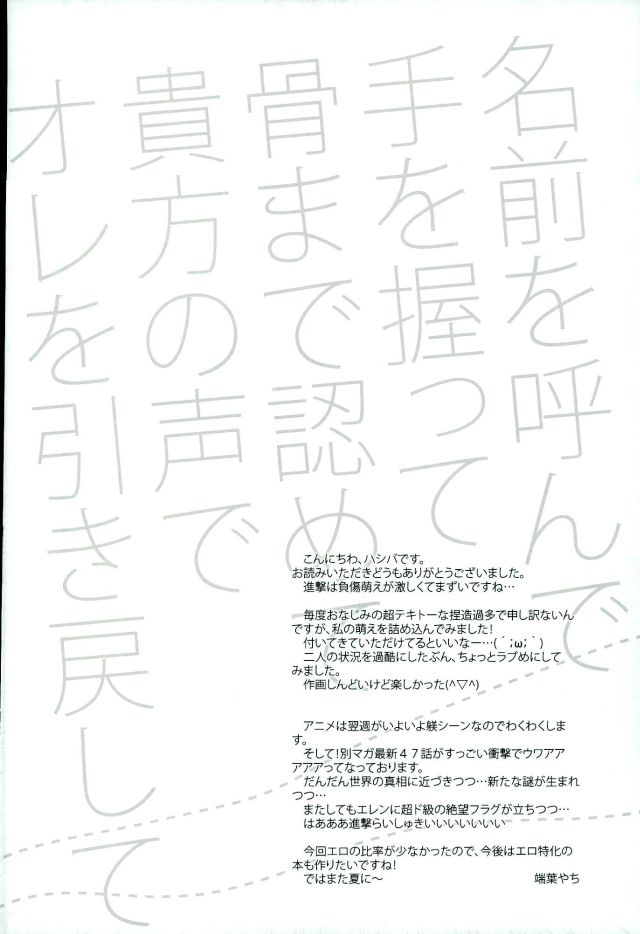 名前を呼んで
手を握って
骨まで認めて、
貴方の声で
オレを引き戻して
こんにちわ、ハシバです。
お読みいただきどうもありがとうございました。
進撃は負傷萌えが激しくてまずいですね…
毎度おなじみの超テキトーな捏造過多で申し訳ないん
ですが、私の萌えを詰め込んでみました!
付いてきていただけてるといいなー…(´;ω;｀)
二人の状況を過酷にしたぶん、ちょっとラブめにして
みました。
作画しんどいけど楽しかった(^▽^)
アニメは翌週がいよいよ躾シーンなのでわくわくしま
す。
そして!別マガ最新４７話がすっごい衝撃でウワアア
アアアってなっております。
だんだん世界の真相に近づきつつ…新たな謎が生まれ
つつ…
またしてもエレンに超ド級の絶望フラグが立ちつつ…
はあああ進撃らいしゅきいいいいいいい
今回エロの比率が少なかったので、今後はエロ特化の
本も作りたいですね!
ではまた夏に～
端葉やち